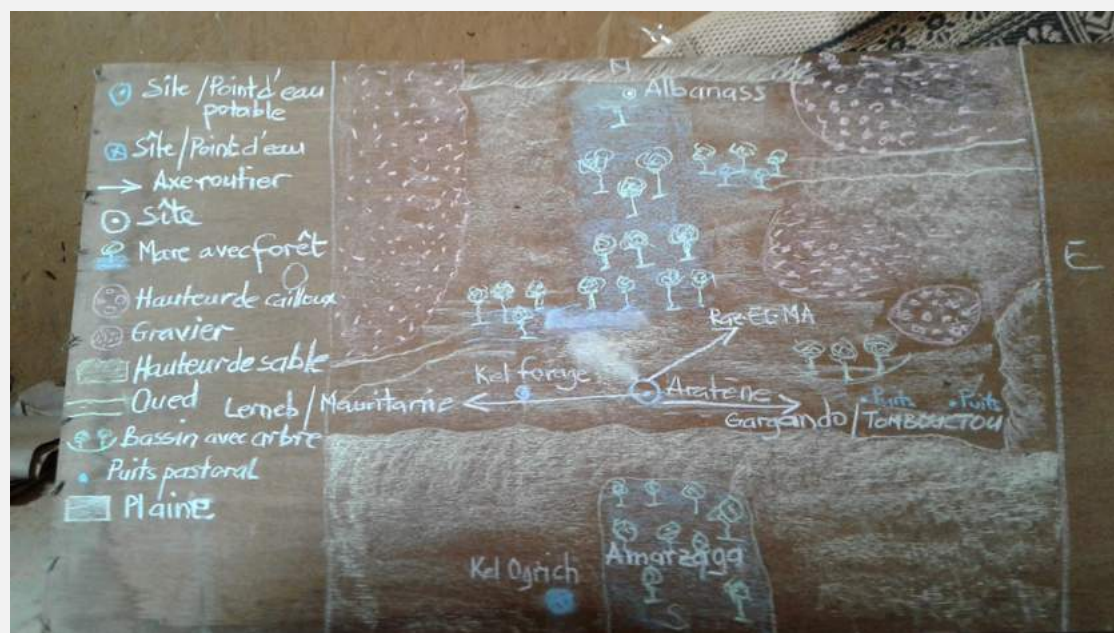 Sîte/Point d'eau
potable
Sîte/Point d'eau
Axe routier
Sîte
Mare avec forêt
Hauteur de cailloux
Gravier
Hauteur de sable
Oued
Bassin avec arbre
Puits pastoral
Plaine
N
Albanass
E
Raz-EL-MA
Kel forage
Aratène
Lerneb/Mauritanie
Gargando/TOMBOUCTOU
Puits
Puits
Amarzaga
Kel Ogrich
S